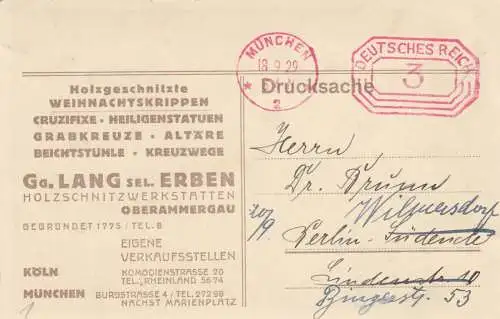 Holzgeschnitzte
WEIHNACHTSKRIPPEN
CRUZIFIXE • HEILIGENSTATUEN
GRABKREUZE • ALTÄRE
BEICHTSTÜHLE • KREUZWEGE
GG. LANG SEL. ERBEN
HOLZSCHNITZWERKSTÄTTEN
OBERAMMERGAU
GEGRÜNDET 1775 / TEL. 8
EIGENE
VERKAUFSSTELLEN
KÖLN KOMÖDIENSTRASSE 20
TEL. RHEINLAND 5674
MÜNCHEN BURGSTRASSE 4 / TEL. 27298
NÄCHST MARIENPLATZ
MÜNCHEN
18.9.29
2
DEUTSCHES REICH
3
Drucksache
Herrn
Dr. Brunn
Wilmersdorf
Berlin-Südende
Lindenstr. 10
53